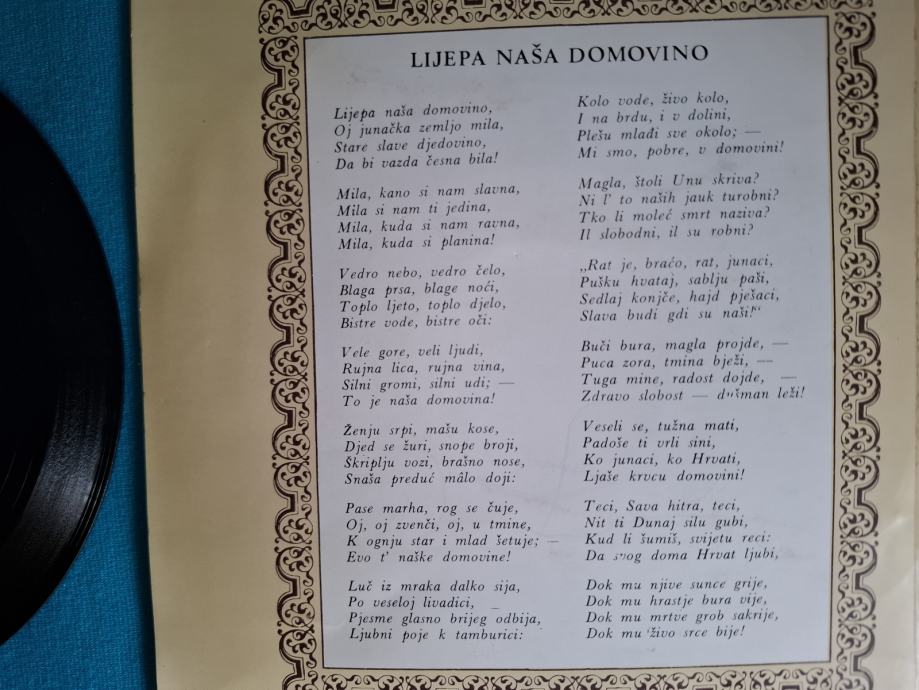 LIJEPA NAŠA DOMOVINO
Lijepa naša domovino,
Oj junačka zemljo mila,
Stare slave djedovino,
Da bi vazda česna bila!
Mila, kano si nam slavna,
Mila si nam ti jedina,
Mila, kuda si nam ravna,
Mila, kuda si planina!
Vedro nebo, vedro čelo,
Blaga prsa, blage noći,
Toplo ljeto, toplo djelo,
Bistre vode, bistre oči:
Vele gore, veli ljudi,
Rujna lica, rujna vina,
Silni gromi, silni udi; —
To je naša domovina!
Ženju srpi, mašu kose,
Djed se žuri, snope broji,
Škriplju vozi, brašno nose,
Snaša preduć mâlo doji:
Pase marha, rog se čuje,
Oj, oj zvenči, oj, u tmine,
K ognju star i mlad šetuje; —
Evo t' naške domovine!
Luč iz mraka dalko sija,
Po veseloj livadici, —
Pjesme glasno brijeg odbija,
Ljubni poje k tamburici:
Kolo vode, živo kolo,
I na brdu, i v dolini,
Plešu mlađi sve okolo; —
Mi smo, pobre, v domovini!
Magla, štoli Unu skriva?
Ni l' to naših jauk turobni?
Tko li moleć smrt naziva?
Il slobodni, il su robni?
„Rat je, braćo, rat, junaci,
Pušku hvataj, sablju paši,
Sedlaj konjče, hajd pješaci,
Slava budi gdi su naši!“
Buči bura, magla projde, —
Puca zora, tmina bježi, —
Tuga mine, radost dojde, —
Zdravo slobost — dušman leži!
Veseli se, tužna mati,
Padoše ti vrli sini,
Ko junaci, ko Hrvati,
Ljaše krvcu domovini!
Teci, Sava hitra, teci,
Nit ti Dunaj silu gubi,
Kud li šumiš, svijetu reci:
Da svog doma Hrvat ljubi,
Dok mu njive sunce grije,
Dok mu hrastje bura vije,
Dok mu mrtve grob sakrije,
Dok mu živo srce bije!